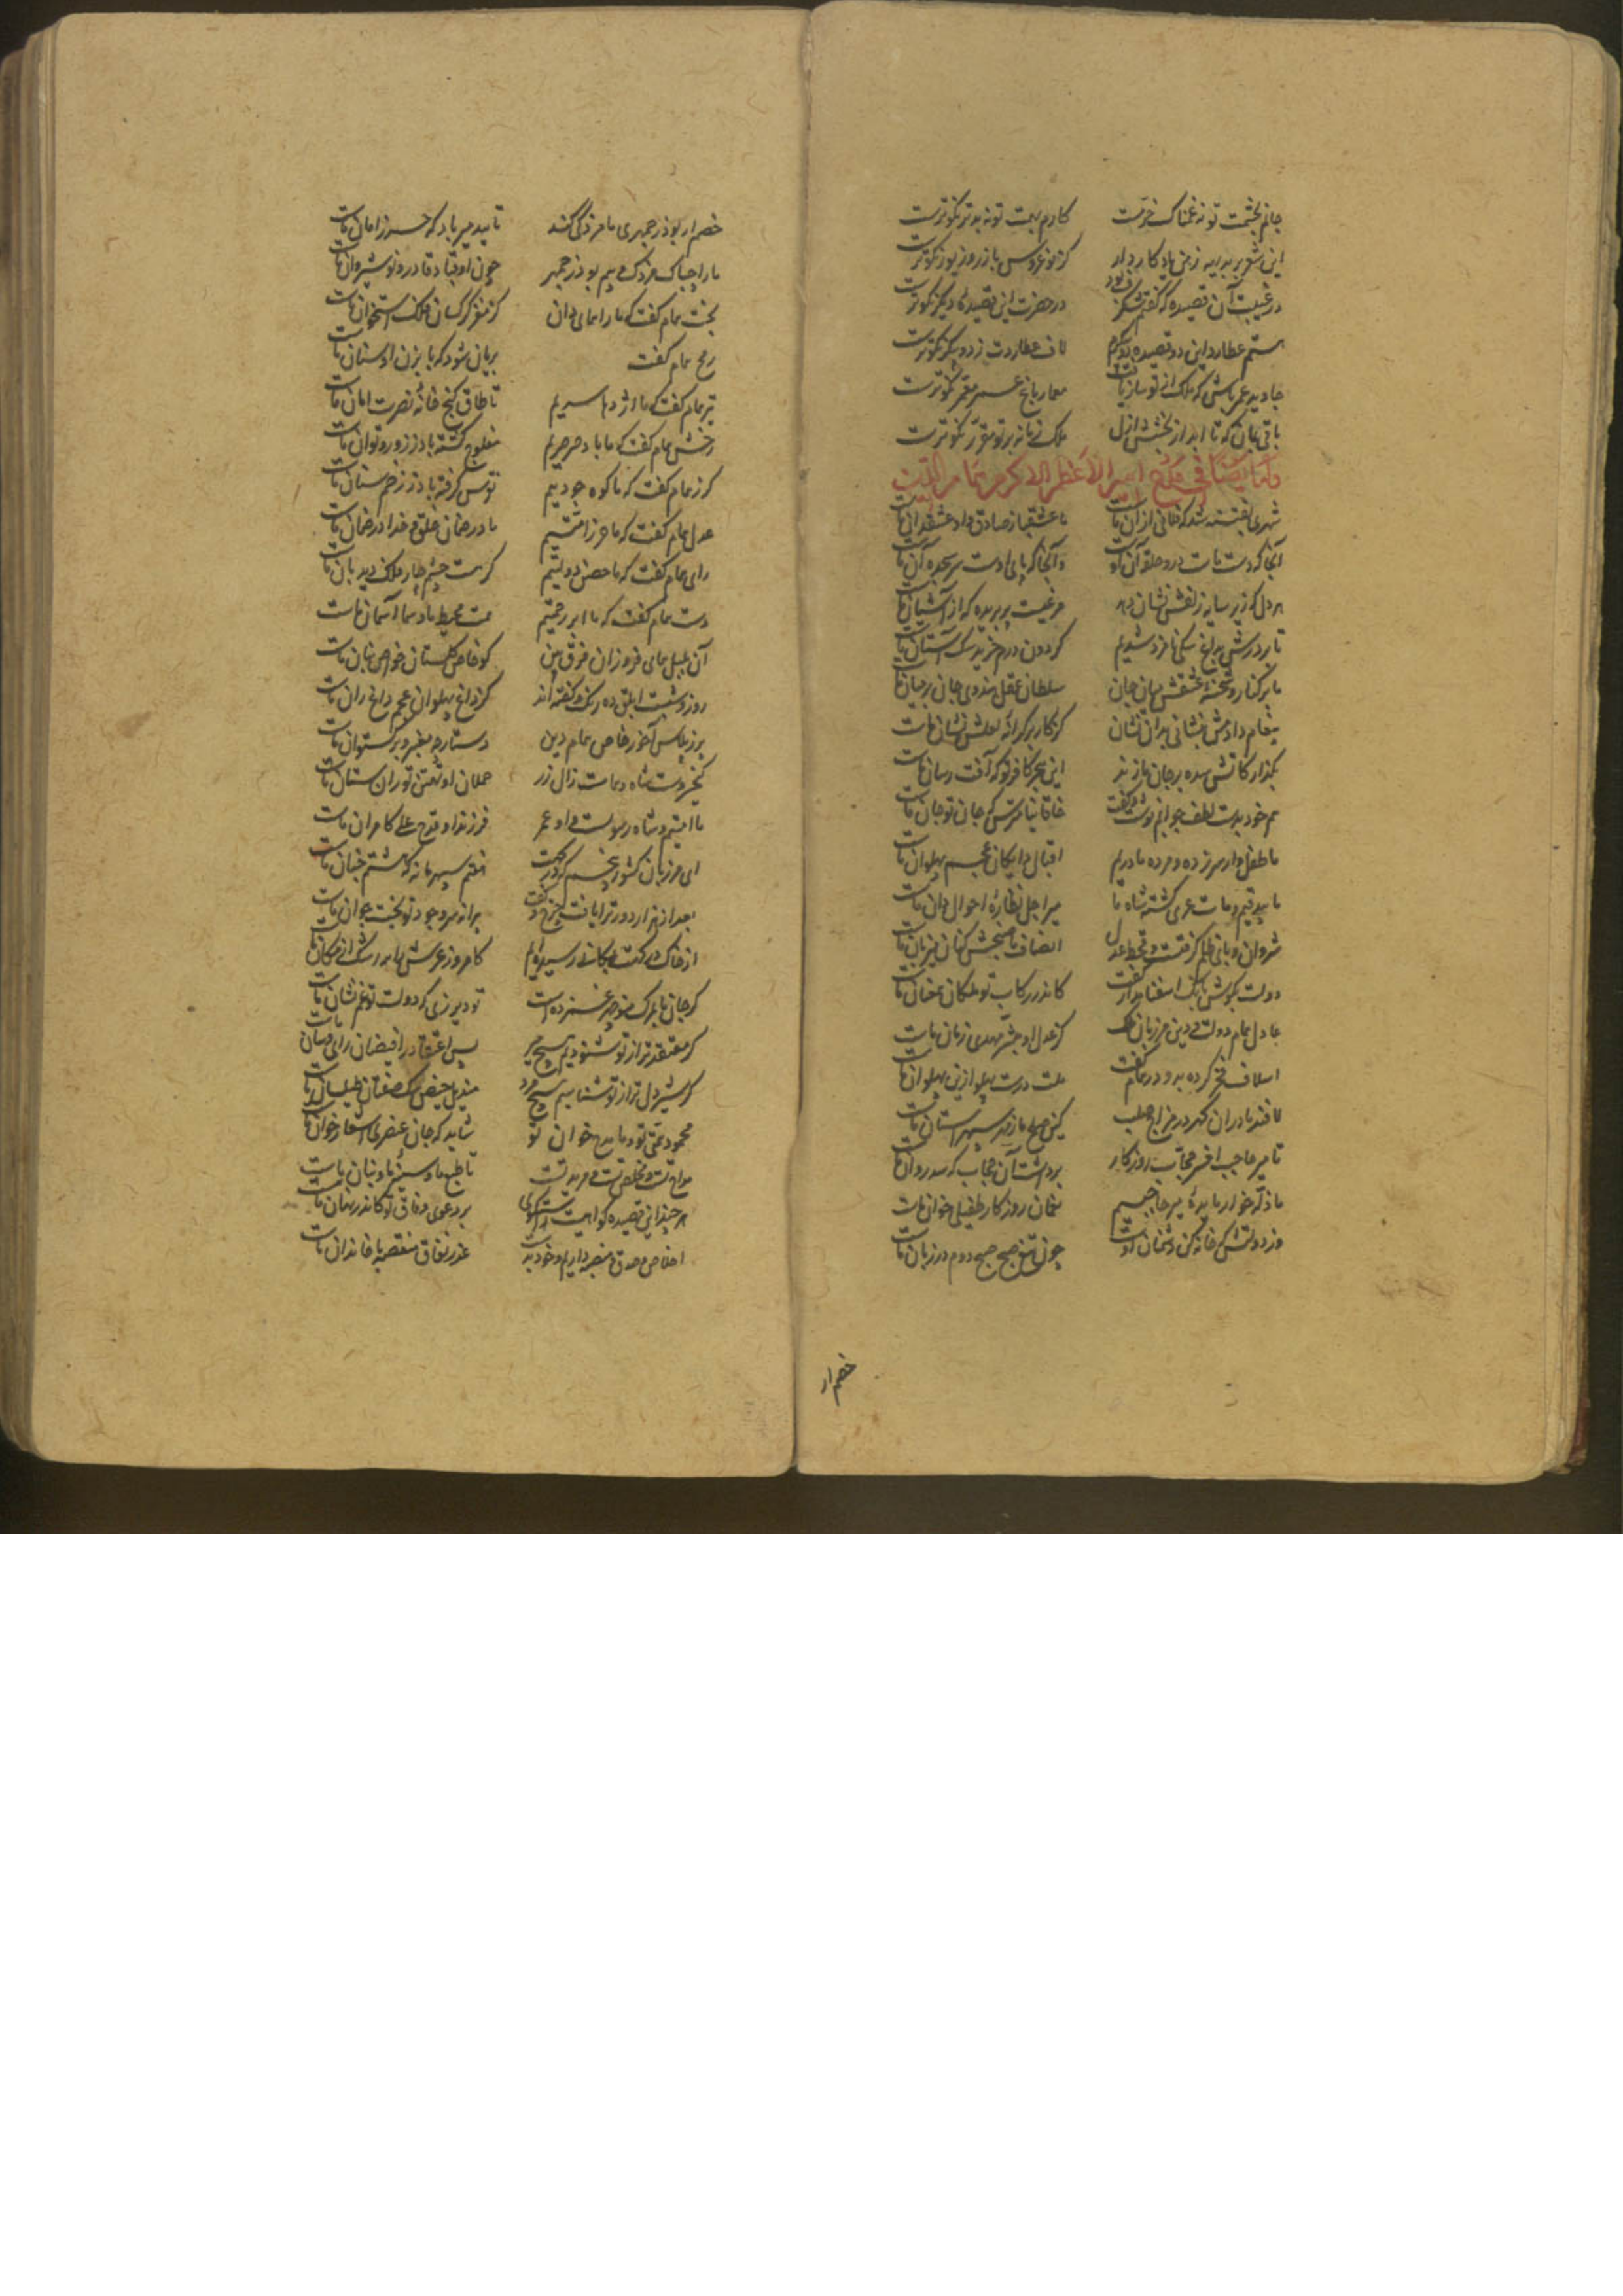 جانم بخشمت تو نه غمناک خرمست کارم بهمت تو نه بدتر نکوترست
این شعر بر بدیهه ز من یادکار دار کز نوعروس با زر و زیور نکوترست
در غیبت آن قصیده که گفتم شگرف بود در حضرت این قصیدهٔ دیگر نکوترست
هستم عطارد این دو قصیده دو پیکرم لاف عطاردت ز دو پیکر نکوترست
جاوید عمر باش که ملک از تو ساز یافت معمار باغ عمر معمر نکوترست
باقی بمان که تا ابد از بخشش ازل ملک زمانه بر تو مقرر نکوترست
وله ایضا فی مدح اسپر الاعظم الاکرم همام الدین
شهری بفتنه شد که فلانی از آن ماست ما عشقباز صادق و او عشقدان ماست
آنجا که دست ماست در او حلقه آن او وانجا که پای اوست سر سجده آن ماست
هر دل که زیر سایه زلفش نشان دهد مرغیست پر بریده که از آشیان ماست
تا بر درش بداغ سگی نامزد شدیم گردون درم خرید سگ آستان ماست
ما بر کنار و شحنه عشقش میان جان سلطان عقل هندوی جان بر میان ماست
پیغام دادمش نشانی بدان نشان کز گاز بر کرانه لعلش نشان ماست
بگذار کاتش سده بر جان ما زند این هجر کافر تو که آفت رسان ماست
هم خود بدست لطف جوابم نوشت و گفت خاقانیا مترس که جان تو جان ماست
ما طفل وار سر زده و مرده مادریم اقبال پهلوان عجم پهلوان ماست
ما بیدقیم و مات عری گشته شاه ما میر اجل نظارهٔ احوال دان ماست
شروان وبای ظلم گرفتست و قحط عدل انصاف تاج بخش کیان میزبان ماست
دولت بگوش نایب اسفندیار گفت کاندر رکاب تو ملکان عنان ماست
عادل همام دولت و دین مرزبان ملک کز عدل او مبشر مهدی زمان ماست
اسلاف فخر کرده بدو در تمام گفت ملت درست پهلو ازین پهلوان ماست
لافند مادران گهر در مزاج صلب کین صلح ما ز مهر سپهر آستان ماست
تا میر حاجب افسر حجاب روزگار برداشت آن حجاب که سد روان ماست
ما ذله خوار مایدهٔ میر حاجبیم نعمان روزگار طفیلی خوان ماست
وز دولتش که خانه کن دشمنان اوست چون تیغ صبح صبح دوم در زبان ماست
خصم ار
خصم ار بوذرجمهری ما مزدکی کند تایید میر باد که حرز امان ماست
ما را چه باک مزدک و بیم بوذرجمهر چون او قباد قادر و نوشیروان ماست
بخت همام گفت که ما را همای دان کز مغز کرکسان فلک استخوان ماست
رمح همام گفت بریان شود که بابزن او سنان ماست
تیر همام گفت که ما اژدها سریم تا طاق گنج خانهٔ نصرت امان ماست
رخش همام گفت که ما باد صرصریم مفلوج گشته باد ز زور و توان ماست
گرز همام گفت که ما کوه جودییم توس گرفته باد ز زخم سنان ماست
عدل همام گفت که ما حرز امتیم ما در ضمان خلق و خدا در ضمان ماست
رای همام گفت که ما حصن دولتیم کز هشت چشم چار ملک دیدبان ماست
دست همام گفت که ما ابر رحمتیم همت محیط ما و سما آسمان ماست
آن لعبل همای فروزان فرق بین کو خاص گلستان خواص نهان ماست
روز و شبست ابلق ده رنگ و گفته اند کز داغ پهلوان عجم داغ ران ماست
برزیکاس آخور خاص همام دین دستارچه مغبر و بر گستوان ماست
کیخسروست شاه و همامست زال زر مهلان او تهمتن توران ستان ماست
ما امتیم و شاه رسولست و او عمر فرزند او مدح علی کامران ماست
ای مرزبان کشور پنجم که درگهت هفتم سپهر مانه که هشتم جنان ماست
بعد از هزار دور ترا یافت چرخ و گفت پیرانه سر وجود تو بخت جوان ماست
از خاک درگهت بمکانی رسیده ایم کامروز عرش ما به رشک از مکان ماست
گر جان ما بمرگ منوچهر غمزده است تو دیر زی که دولت تو غم نشان ماست
گر معتقدتر از تو شنودیم هیچ میر پس اعتقاد رافضیان رای و سان ماست
گر شیردل تر از تو شناسیم هیچ مرد مندیل حیض سگ صفتان طیلسان ماست
محمود همتی تو و ما مدح خوان تو شاید که جان عنصری اشعار خوان ماست
مداح تست و مخلص تست و مرید تست تا طبع ما و سینهٔ ما و بنان ماست
هر چند این قصیده گواهیست راستگوی بر دعوی وفاق تو کاندر نهان ماست
اخلاص و صدق منصبه داریم و خود بدست غدر و نفاق منقصه خاندان ماست